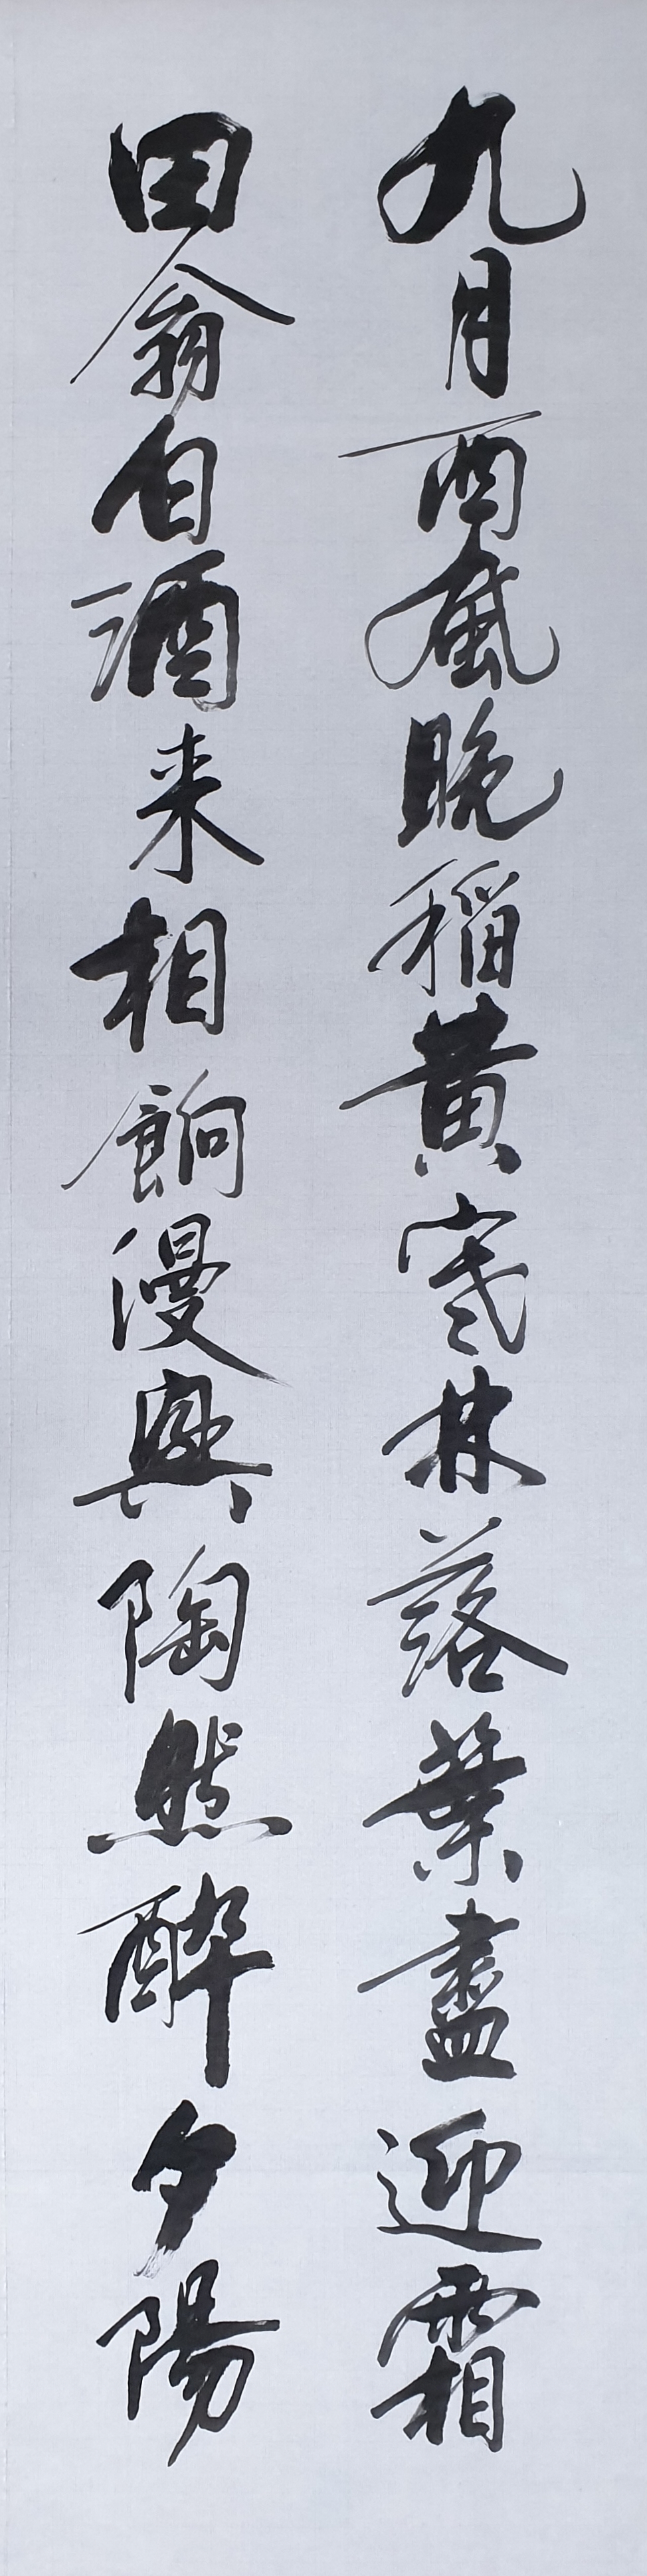 九月西風晚稻黃寒林落葉盡迎霜
田翁白酒来相餉漫興陶然醉夕陽